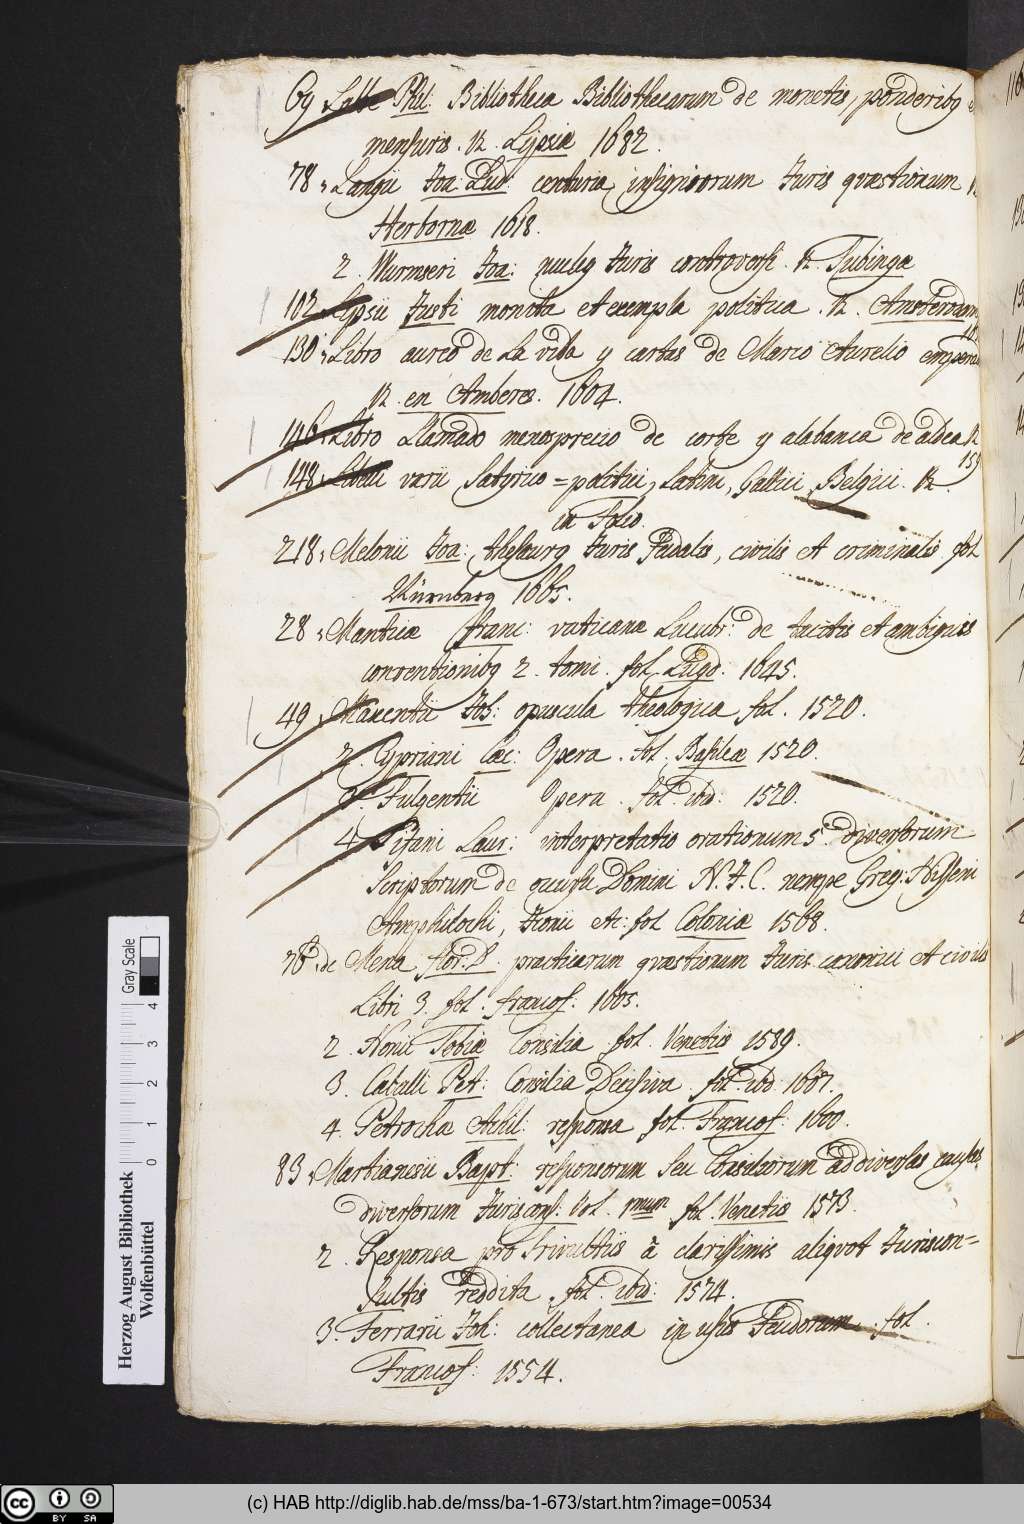 69 Labbe Phil: Bibliotheca Bibliothecarum de monetis, ponderibq
mensuris. 12. Lipsiæ 1682.
78, Langii Joa: Lud: centuria insigniorum Juris quæstionum
Herbornæ 1618.
2. Wurmseri Joa: nucleq Juris controversi. 12. Tubingæ
102. Lipsii Justi monita et exempla politica. 12. Amsterdam
130, Libro aureo de la vida y cartas de Marco Aurelio
12. en Amberes. 1604.
146, Libro Llamado menosprecio de corte y alabanca de aldea 12
159
148, Libelli varii Satyrico=politici, Latini, Gallici, Belgici. 12.
in Folio.
218, Melonii Joa: Juris Feudalis, civilis et criminalis fol
Nürnberg 1665.
28, Manticæ Franc: vaticanæ Lucubr: de tacitis et ambiguis
conventionibq 2. tomi. fol. Lugd: 1645.
49, Maxentii Joh: opuscula theologica fol. 1520.
2. Cypriani Cæc: Opera. fol. Basileæ 1520.
3. Fulgentii Opera. fol. ibid: 1520.
4. Pisani Laur: interpretatio orationum 5. diversorum
Scriptorum de occursu Domini N. J. C. nempe Greg: Nisseni
Amphilochi, etc: fol Coloniæ 1568.
76, de Mena flor. D. practicarum quæstionum Juris canonici et civilis
Libri 3. fol. francof: 1605.
2. Nonii Tobiæ Consilia fol. Venetiis 1589.
3. Caballi Pet: Consilia Decisiva. fol. ibd: 1607.
4. Petrocha Achil: responsa fol. Francof: 1600.
83, Martianesii Bapt: responsorum seu Consiliorum ad diversas causas
diversorum Jurisconf: Vol. 1mum fol. Venetiis 1573.
2. Responsa pro Trivultiis à clarissimis aliquot Juriscon=
sultis reddita fol. ibid: 1574.
3. Ferrarii Joh: collectanea in usus Feudorum. fol.
Francof: 1554.
Herzog August Bibliothek
Wolfenbüttel
0 1 2 3 4
Gray Scale
cc BY SA
(c) HAB http://diglib.hab.de/mss/ba-1-673/start.htm?image=00534